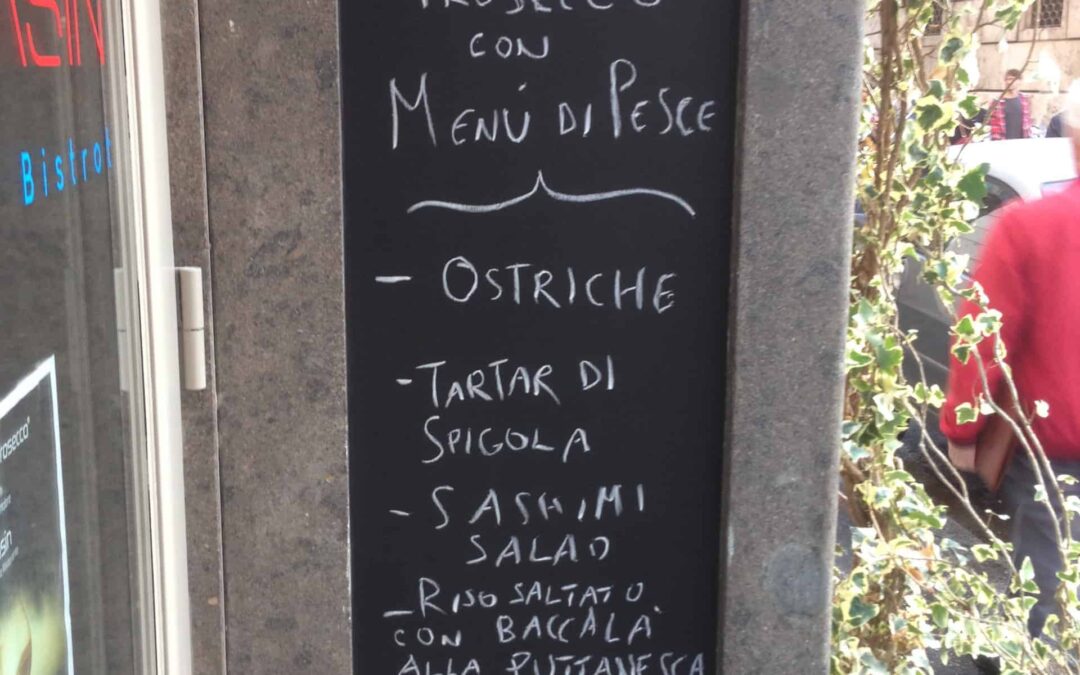 PROSECCO
CON
MENÚ DI PESCE
- OSTRICHE
- TARTAR DI
SPIGOLA
- SASHIMI
SALAD
- RISO SALTATO
CON BACCALÀ
ALLA PUTTANESCA
Bistrot
rosecco